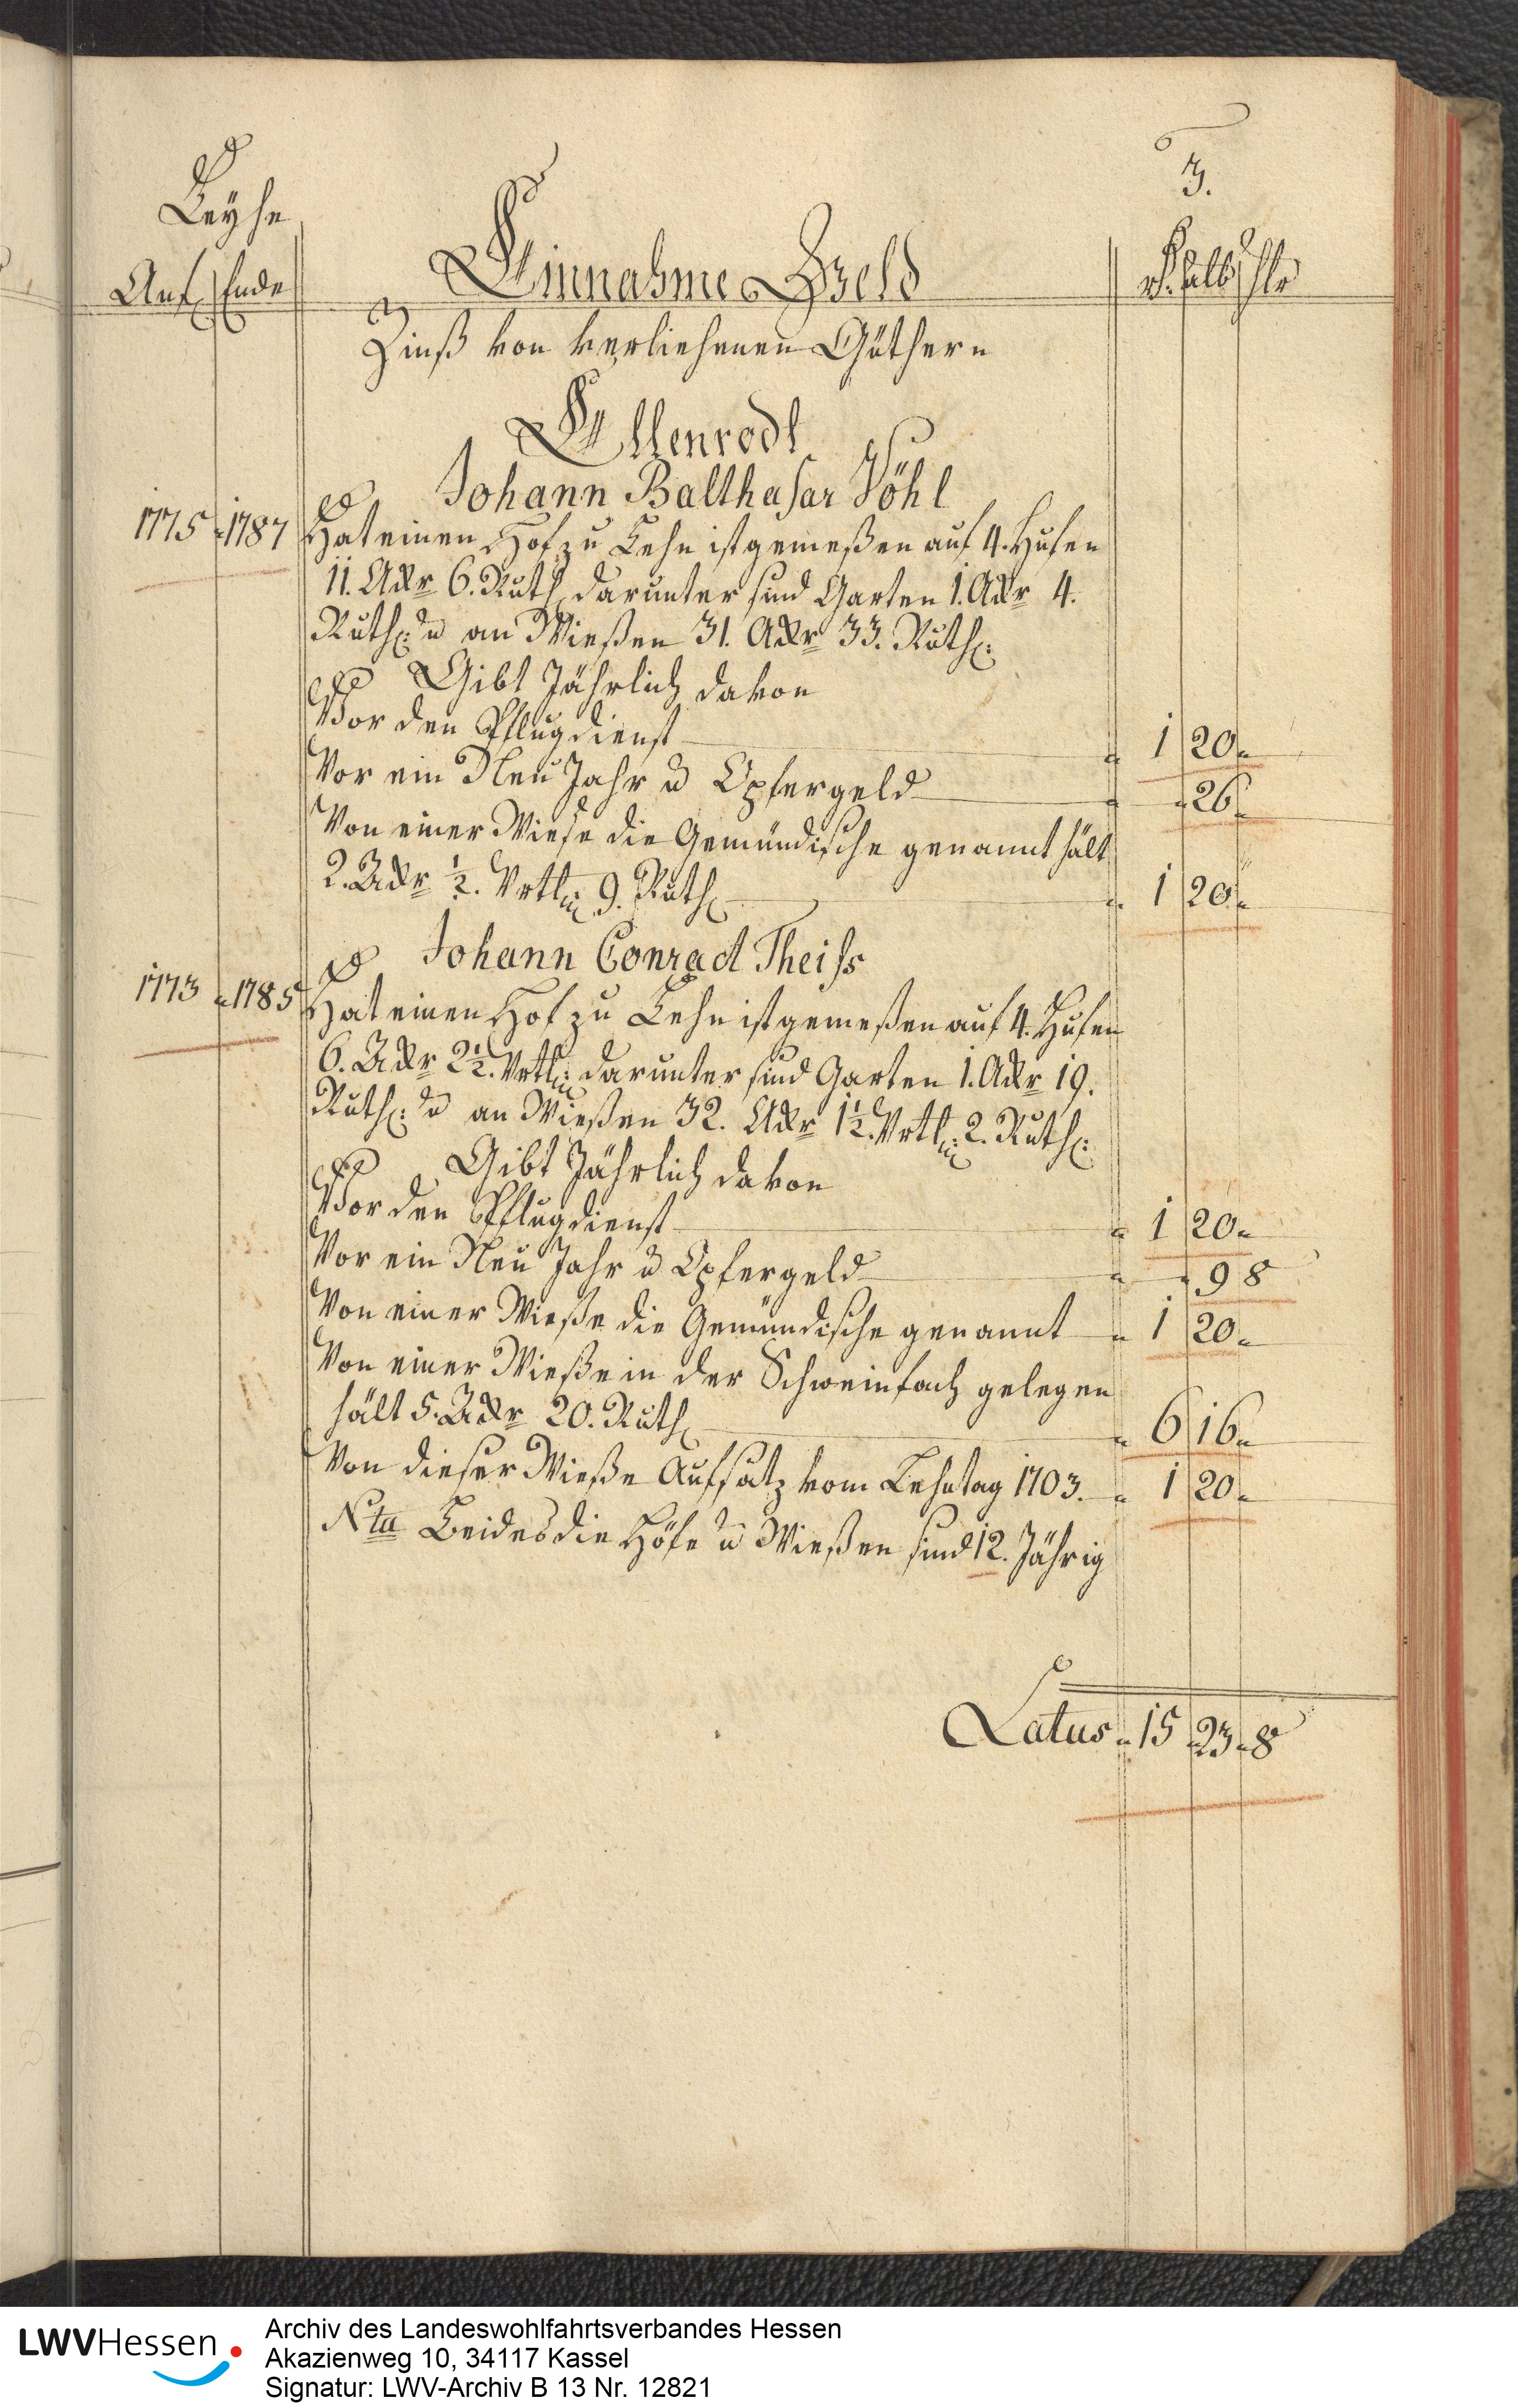 3.
Leyhe
Anf Ende
Einnahme Geld
rh. alb hlr
Zinß von verliehenen Güthern
Ellenrodt
Johann Balthasar Vöhl
1775 - 1787 Hat einen Hof zu Lehn ist gemeßen auf 4. Hufen
11. Akr 6. Ruth darunter sind Garten 1. Akr 4.
Ruth: u an Wießen 31. Akr 33. Ruth:
Gibt Jährlich davon
Vor den Pflugdienst - 1 20 -
Vor ein Neu Jahr u Opfergeld - - 26 -
Von einer Wiese die Gemündische genannt hält
2. Akr ½. Vrtl 9. Ruth - 1 20 -
Johann Conrad Theiss
1773 - 1785 Hat einen Hof zu Lehn ist gemeßen auf 4. Hufen
6. Akr 2½. Vrtl: darunter sind Garten 1. Akr 19.
Ruth: u an Wießen 32. Akr 1½. Vrtl: 2. Ruth:
Gibt Jährlich davon
Vor den Pflugdienst - 1 20 -
Vor ein Neu Jahr u Opfergeld - - 9 8
Von einer Wieße die Gemündische genannt - 1 20 -
Von einer Wieße in der Schweinfach gelegen
hält 5. Akr 20. Ruth - 6 16 -
Von dieser Wieße Aufsatz vom Lehntag 1703. - 1 20 -
Nta Beides die Höfe u Wießen sind 12. Jährig
Latus - 15 - 23 - 8
LWVHessen
Archiv des Landeswohlfahrtsverbandes Hessen
Akazienweg 10, 34117 Kassel
Signatur: LWV-Archiv B 13 Nr. 12821